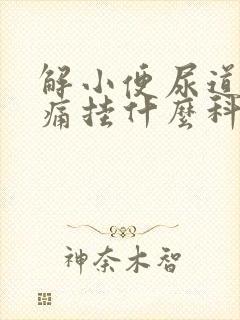 解小便尿道
痛挂什麼科
神奈木智